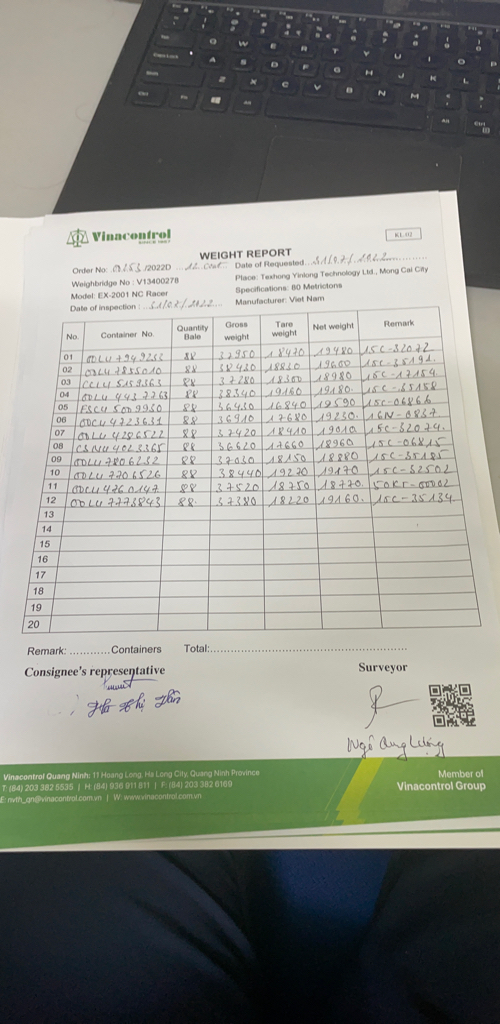 Vinacontrol
SINCE 1957
WEIGHT REPORT
Order No: 0253/2022D ...12 Cont.. Date of Requested...31/07/2022
Weighbridge No : V13400278 Place: Texhong Yinlong Technology Ltd., Mong Cai City
Model: EX-2001 NC Racer Specifications: 80 Metrictons
Date of inspection : 31/07/2022 Manufacturer: Viet Nam
No. Container No. Quantity Bale Gross weight Tare weight Net weight Remark
01 OOLU 7949253 88 37950 18470 19480 15C-32072
02 OOLU 7855010 88 38430 18830 19600 15C-35191
03 CCLU 5159363 88 37280 18300 18980 15C-17154
04 88 38340 19160 19180 15C-35158
05 FSCU 88 36430 16840 19590 15C-06866
06 OOCU 4723631 88 36910 17680 19230 16N-6837
07 OOLU 4286522 88 37420 18410 19010 15C-32074
08 88 36620 17660 18960 15C-06815
09 OOLU 7806232 88 37030 18150 18880 15C-35185
10 OOLU 7706526 88 38440 19270 19170 15C-32502
11 OOCU 4760147 88 37520 18750 18770 50KT-00002
12 OOLU 7773843 88 37380 18220 19160 15C-35134
13
14
15
16
17
18
19
20
Remark: ............Containers Total:
Consignee's representative Surveyor
Vinacontrol Quang Ninh: 11 Hoang Long, Ha Long City, Quang Ninh Province
T: (84) 203 382 5535 | H: (84) 936 911 811 | F: (84) 203 382 6169
E: nvth_qn@vinacontrol.com.vn | W: www.vinacontrol.com.vn
Member of
Vinacontrol Group